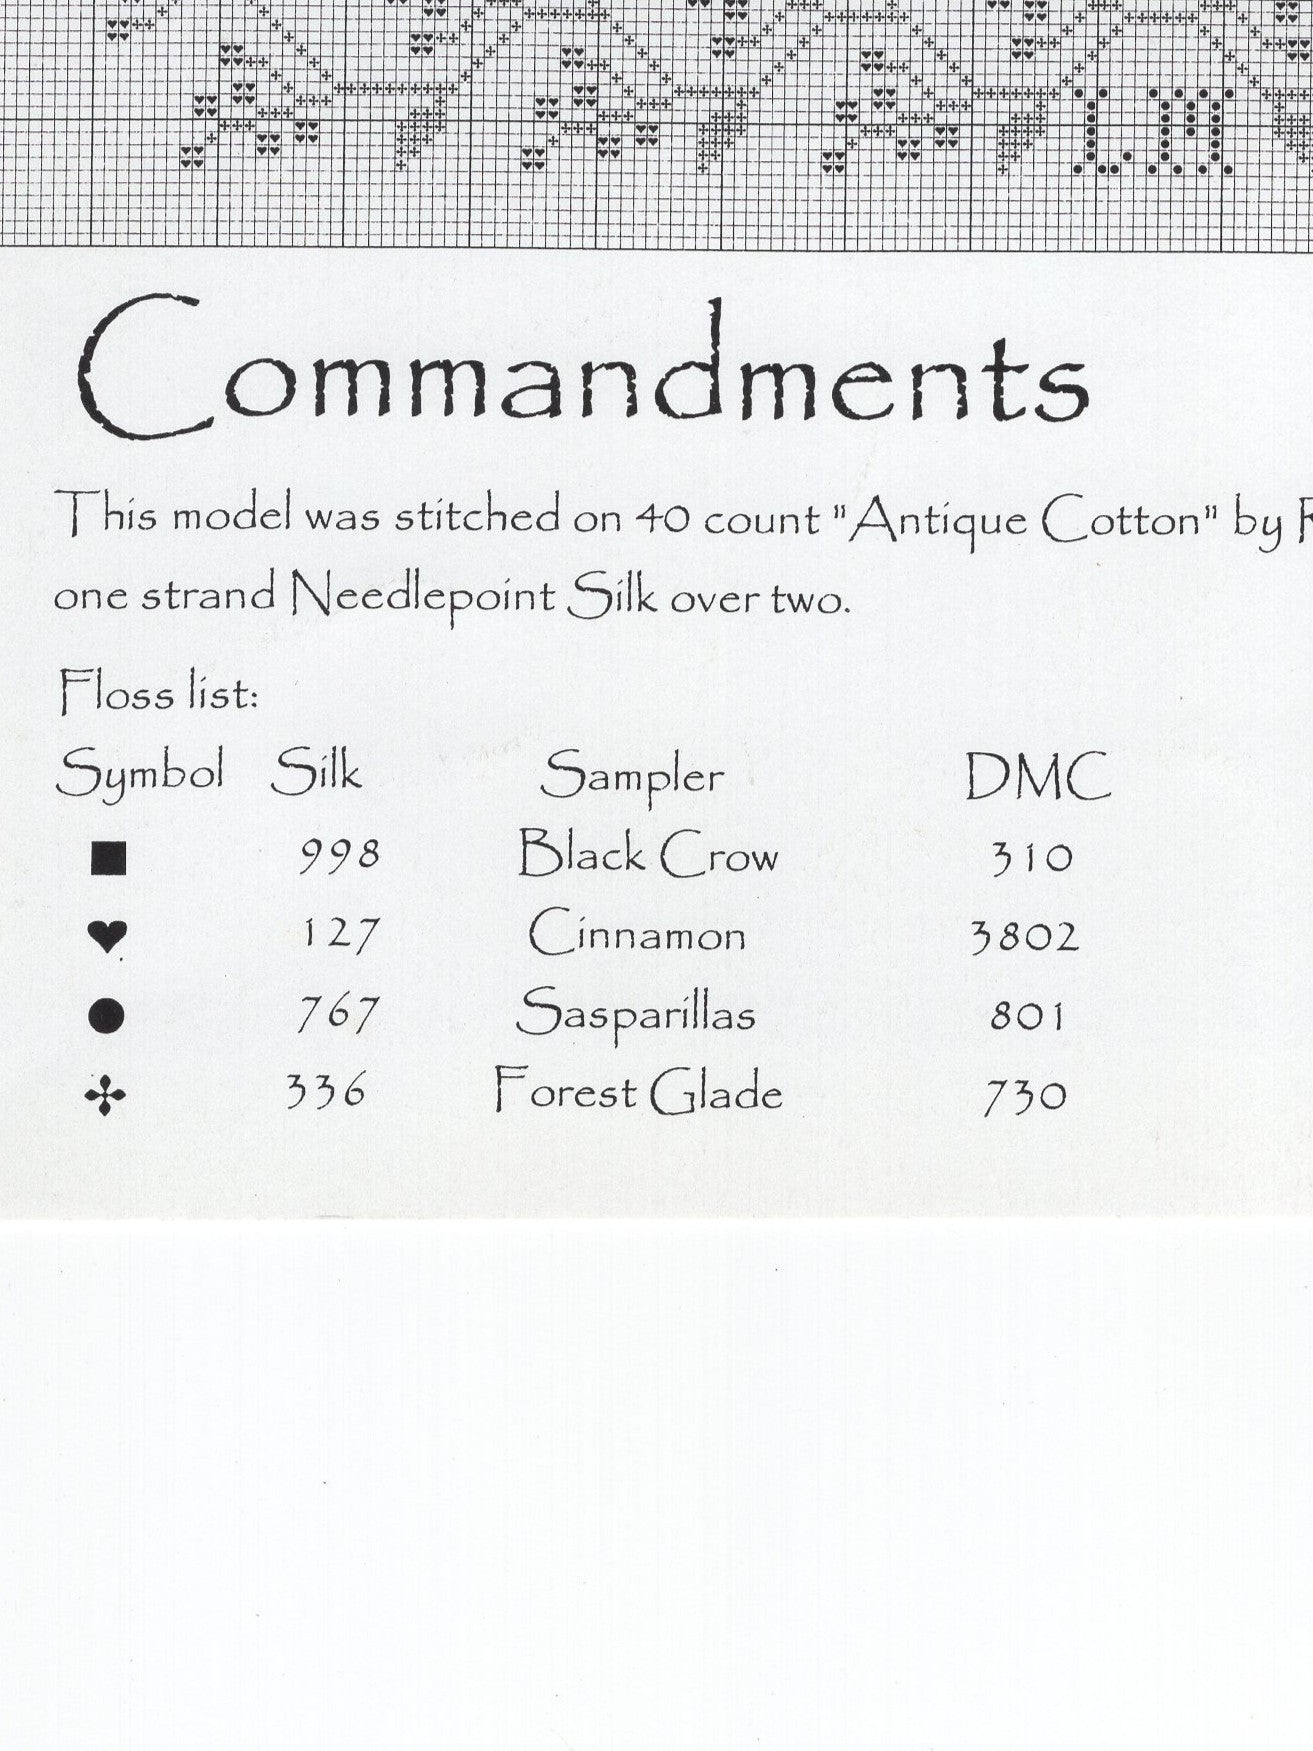 LM
Commandments
This model was stitched on 40 count "Antique Cotton" by
one strand Needlepoint Silk over two.
Floss list:
Symbol Silk Sampler DMC
998 Black Crow 310
127 Cinnamon 3802
767 Sasparillas 801
336 Forest Glade 730